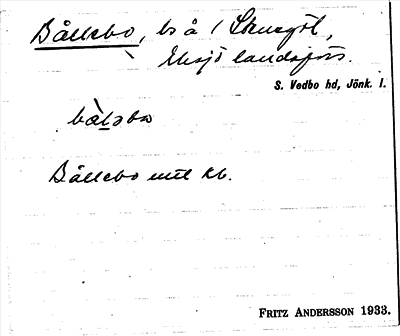 Bållebo, bs å / Skuregöl,
Eksjö landsförs.
S. Vedbo hd, Jönk. l.
bàləbω
Bållebo mtl kb.
FRITZ ANDERSSON 1933.